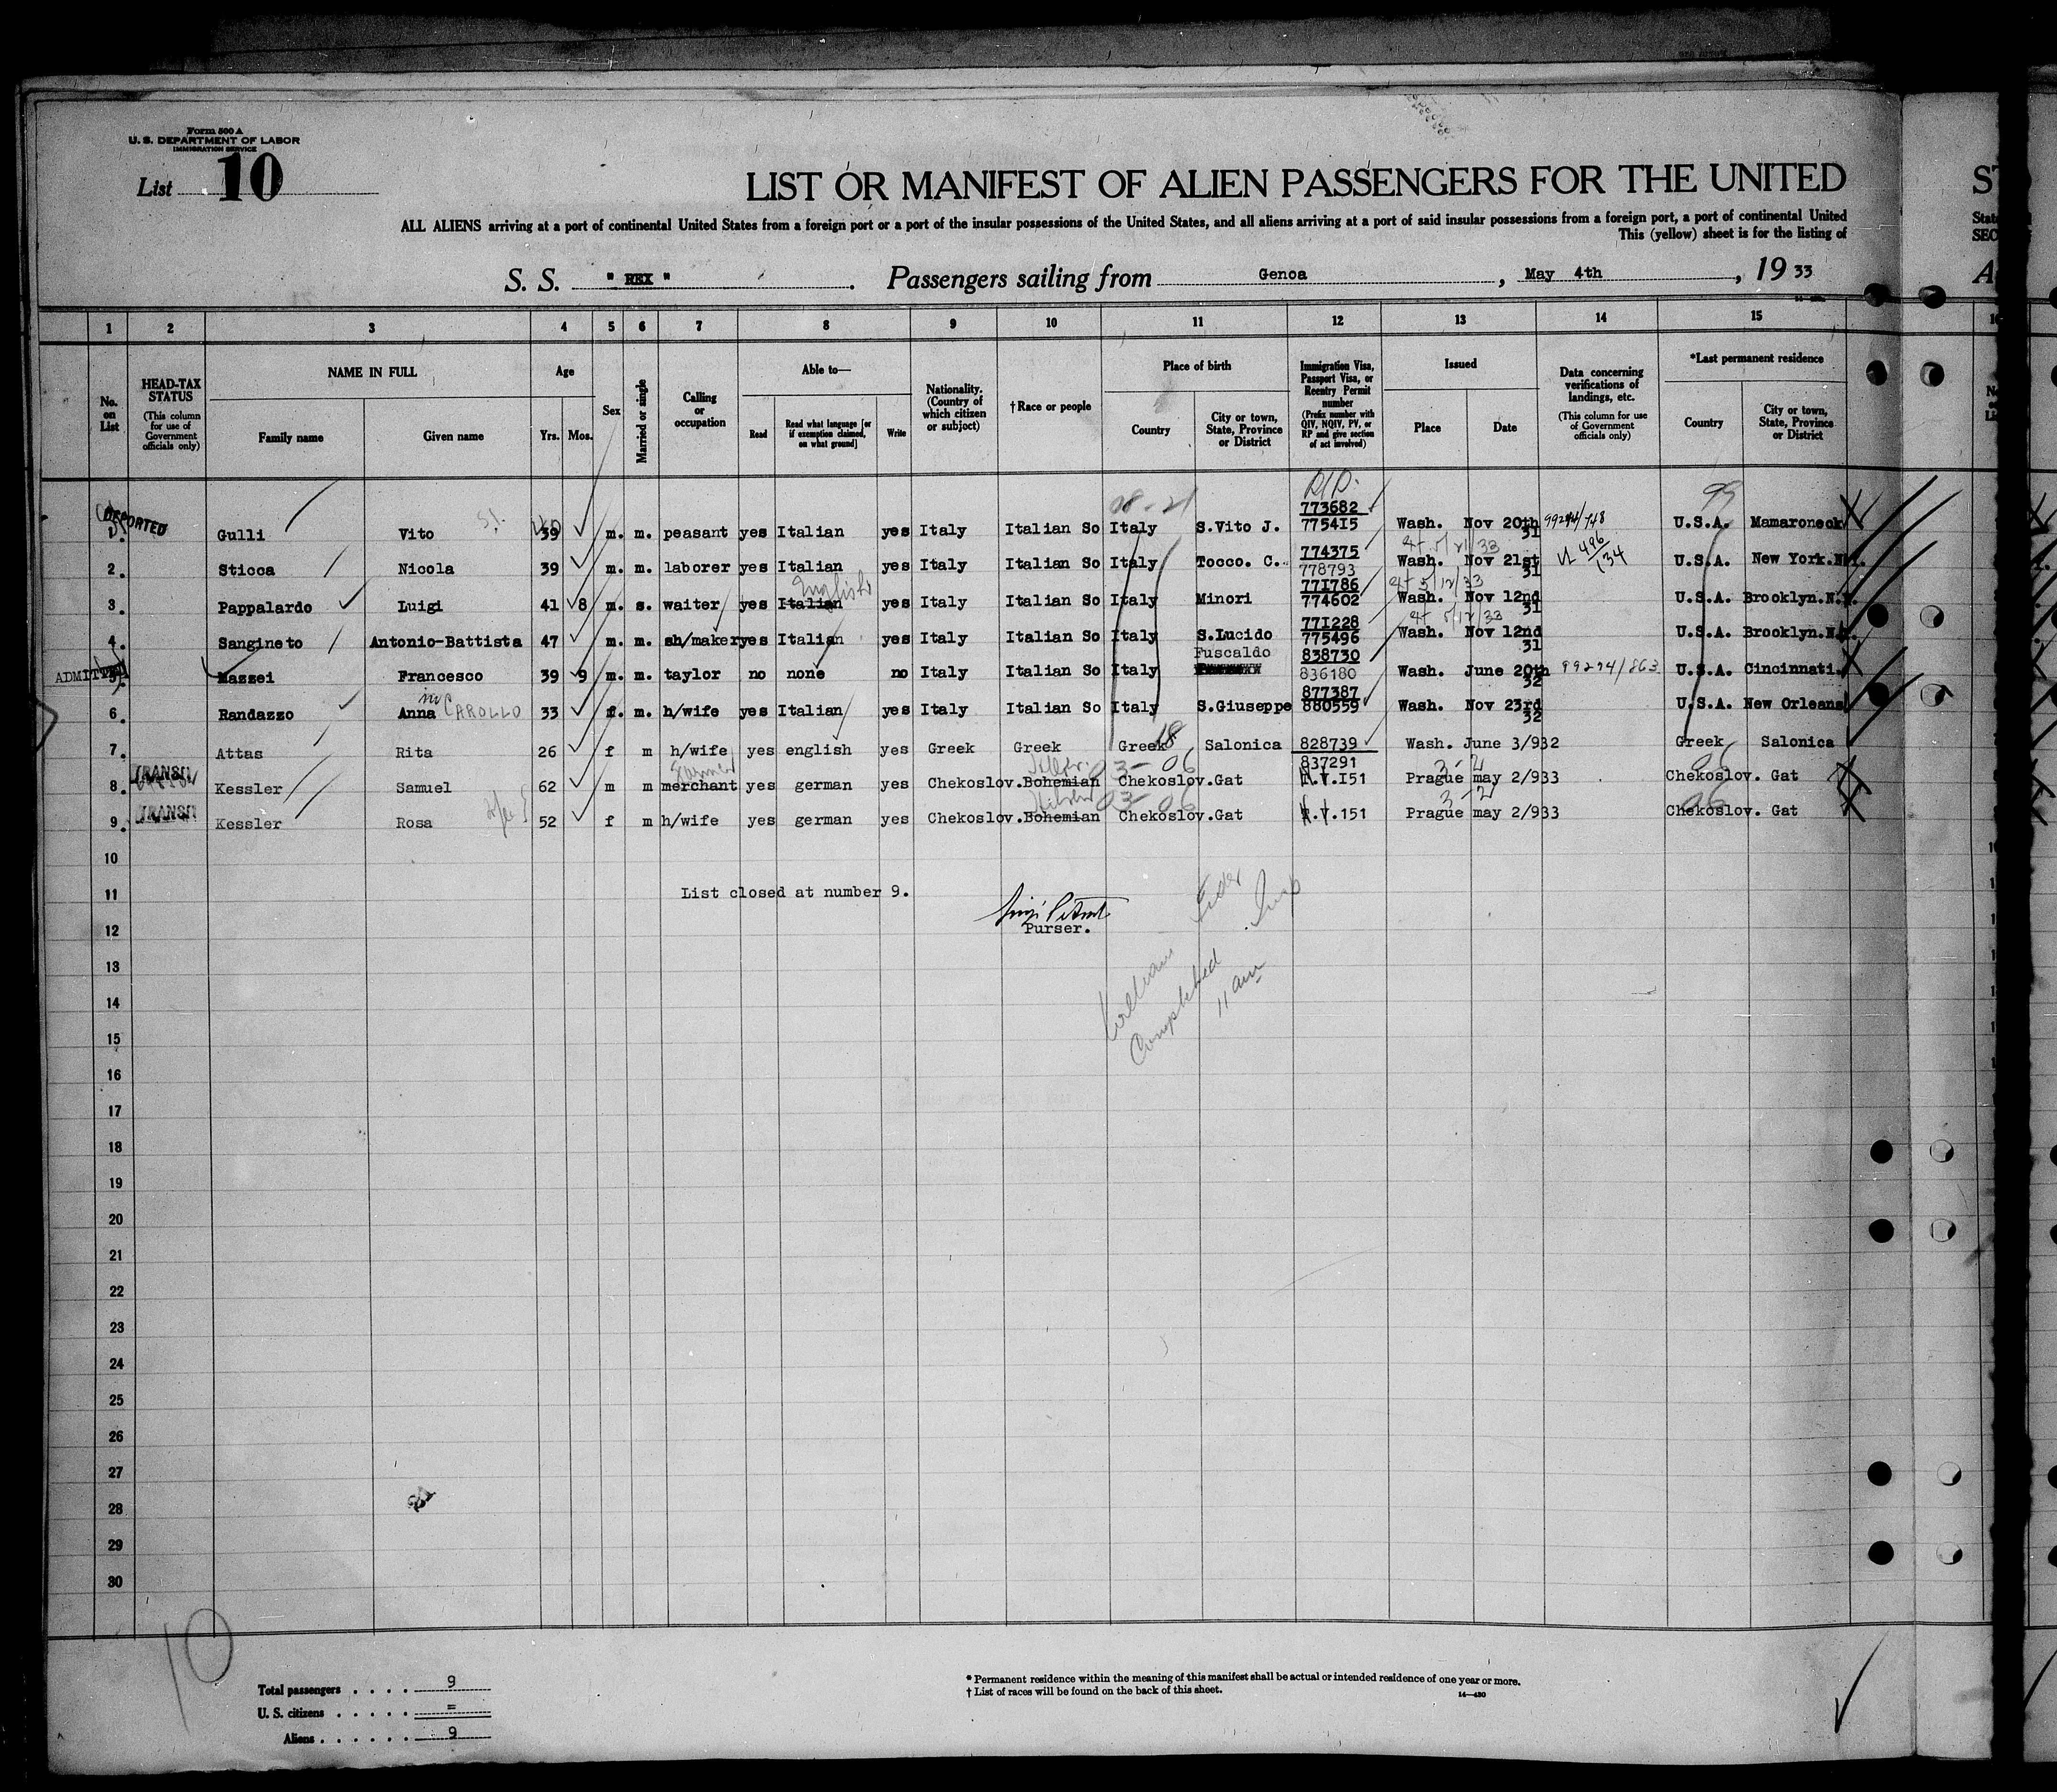 Form 500 A
U. S. DEPARTMENT OF LABOR
IMMIGRATION SERVICE
List 10
LIST OR MANIFEST OF ALIEN PASSENGERS FOR THE UNITED
ALL ALIENS arriving at a port of continental United States from a foreign port or a port of the insular possessions of the United States, and all aliens arriving at a port of said insular possessions from a foreign port, a port of continental United
This (yellow) sheet is for the listing of
S. S. " REX " . Passengers sailing from Genoa , May 4th , 19 33
1 2 3 4 5 6 7 8 9 10 11 12 13 14 15
No. on List
HEAD-TAX STATUS (This column for use of Government officials only)
NAME IN FULL Family name Given name
Age Yrs. Mos.
Sex
Married or single
Calling or occupation
Able to— Read Read what language [or if exemption claimed, on what ground] Write
Nationality. (Country of which citizen or subject)
†Race or people
Place of birth Country City or town, State, Province or District
Immigration Visa, Passport Visa, or Reentry Permit number (Prefix number with QIV, NQIV, PV, or RP and give section of act involved)
Issued Place Date
Data concerning verifications of landings, etc. (This column for use of Government officials only)
*Last permanent residence Country City or town, State, Province or District
08-21 99
773682
DEPORTED Gulli Vito 39 m. m. peasant yes Italian yes Italy Italian So Italy S.Vito J. 775415 Wash. Nov 20th 31 99294/748 U.S.A. Mamaroneck
774375
2. Sticca Nicola 39 m. m. laborer yes Italian yes Italy Italian So Italy Tocco. C. 778793 Wash. Nov 21st 31 U.S.A. New York.N.Y.
English 771786 5/12/33
3. Pappalardo Luigi 41 8 m. s. waiter yes Italian yes Italy Italian So Italy Minori 774602 Wash. Nov 12nd 31 U.S.A. Brooklyn.N.Y.
771228 5/12/33
4. Sangineto Antonio-Battista 47 m. m. sh/maker yes Italian yes Italy Italian So Italy S.Lucido 775496 Wash. Nov 12nd 31 U.S.A. Brooklyn.N.Y.
Fuscaldo 838730
ADMITTED 5. Mazzei Francesco 39 9 m. m. taylor no none no Italy Italian So Italy 836180 Wash. June 20th 32 99294/863 U.S.A. Cincinnati.
in 877387
6. Randazzo Anna CAROLLO 33 f. m. h/wife yes Italian yes Italy Italian So Italy S.Giuseppe 880559 Wash. Nov 23rd 32 U.S.A. New Orleans
7. Attas Rita 26 f m h/wife yes english yes Greek Greek Greek 18 Salonica 828739 Wash. June 3/932 Greek Salonica
TRANSIT farmer 03-06 837291 3-2 06
8. Kessler Samuel 62 m m merchant yes german yes Chekoslov. Bohemian Chekoslov. Gat V.I51 Prague may 2/933 Chekoslov. Gat
TRANSIT 03-06 3-2 06
9. Kessler Rosa 52 f m h/wife yes german yes Chekoslov. Bohemian Chekoslov. Gat V.151 Prague may 2/933 Chekoslov. Gat
10
11 List closed at number 9.
12 Purser.
13
14
Completed
11 am
15
16
17
18
19
20
21
22
23
24
25
26
27
28
29
30
10
Total passengers . . . . 9
U. S. citizens . . . . . =
Aliens . . . . . . 9
* Permanent residence within the meaning of this manifest shall be actual or intended residence of one year or more.
† List of races will be found on the back of this sheet.
14—430